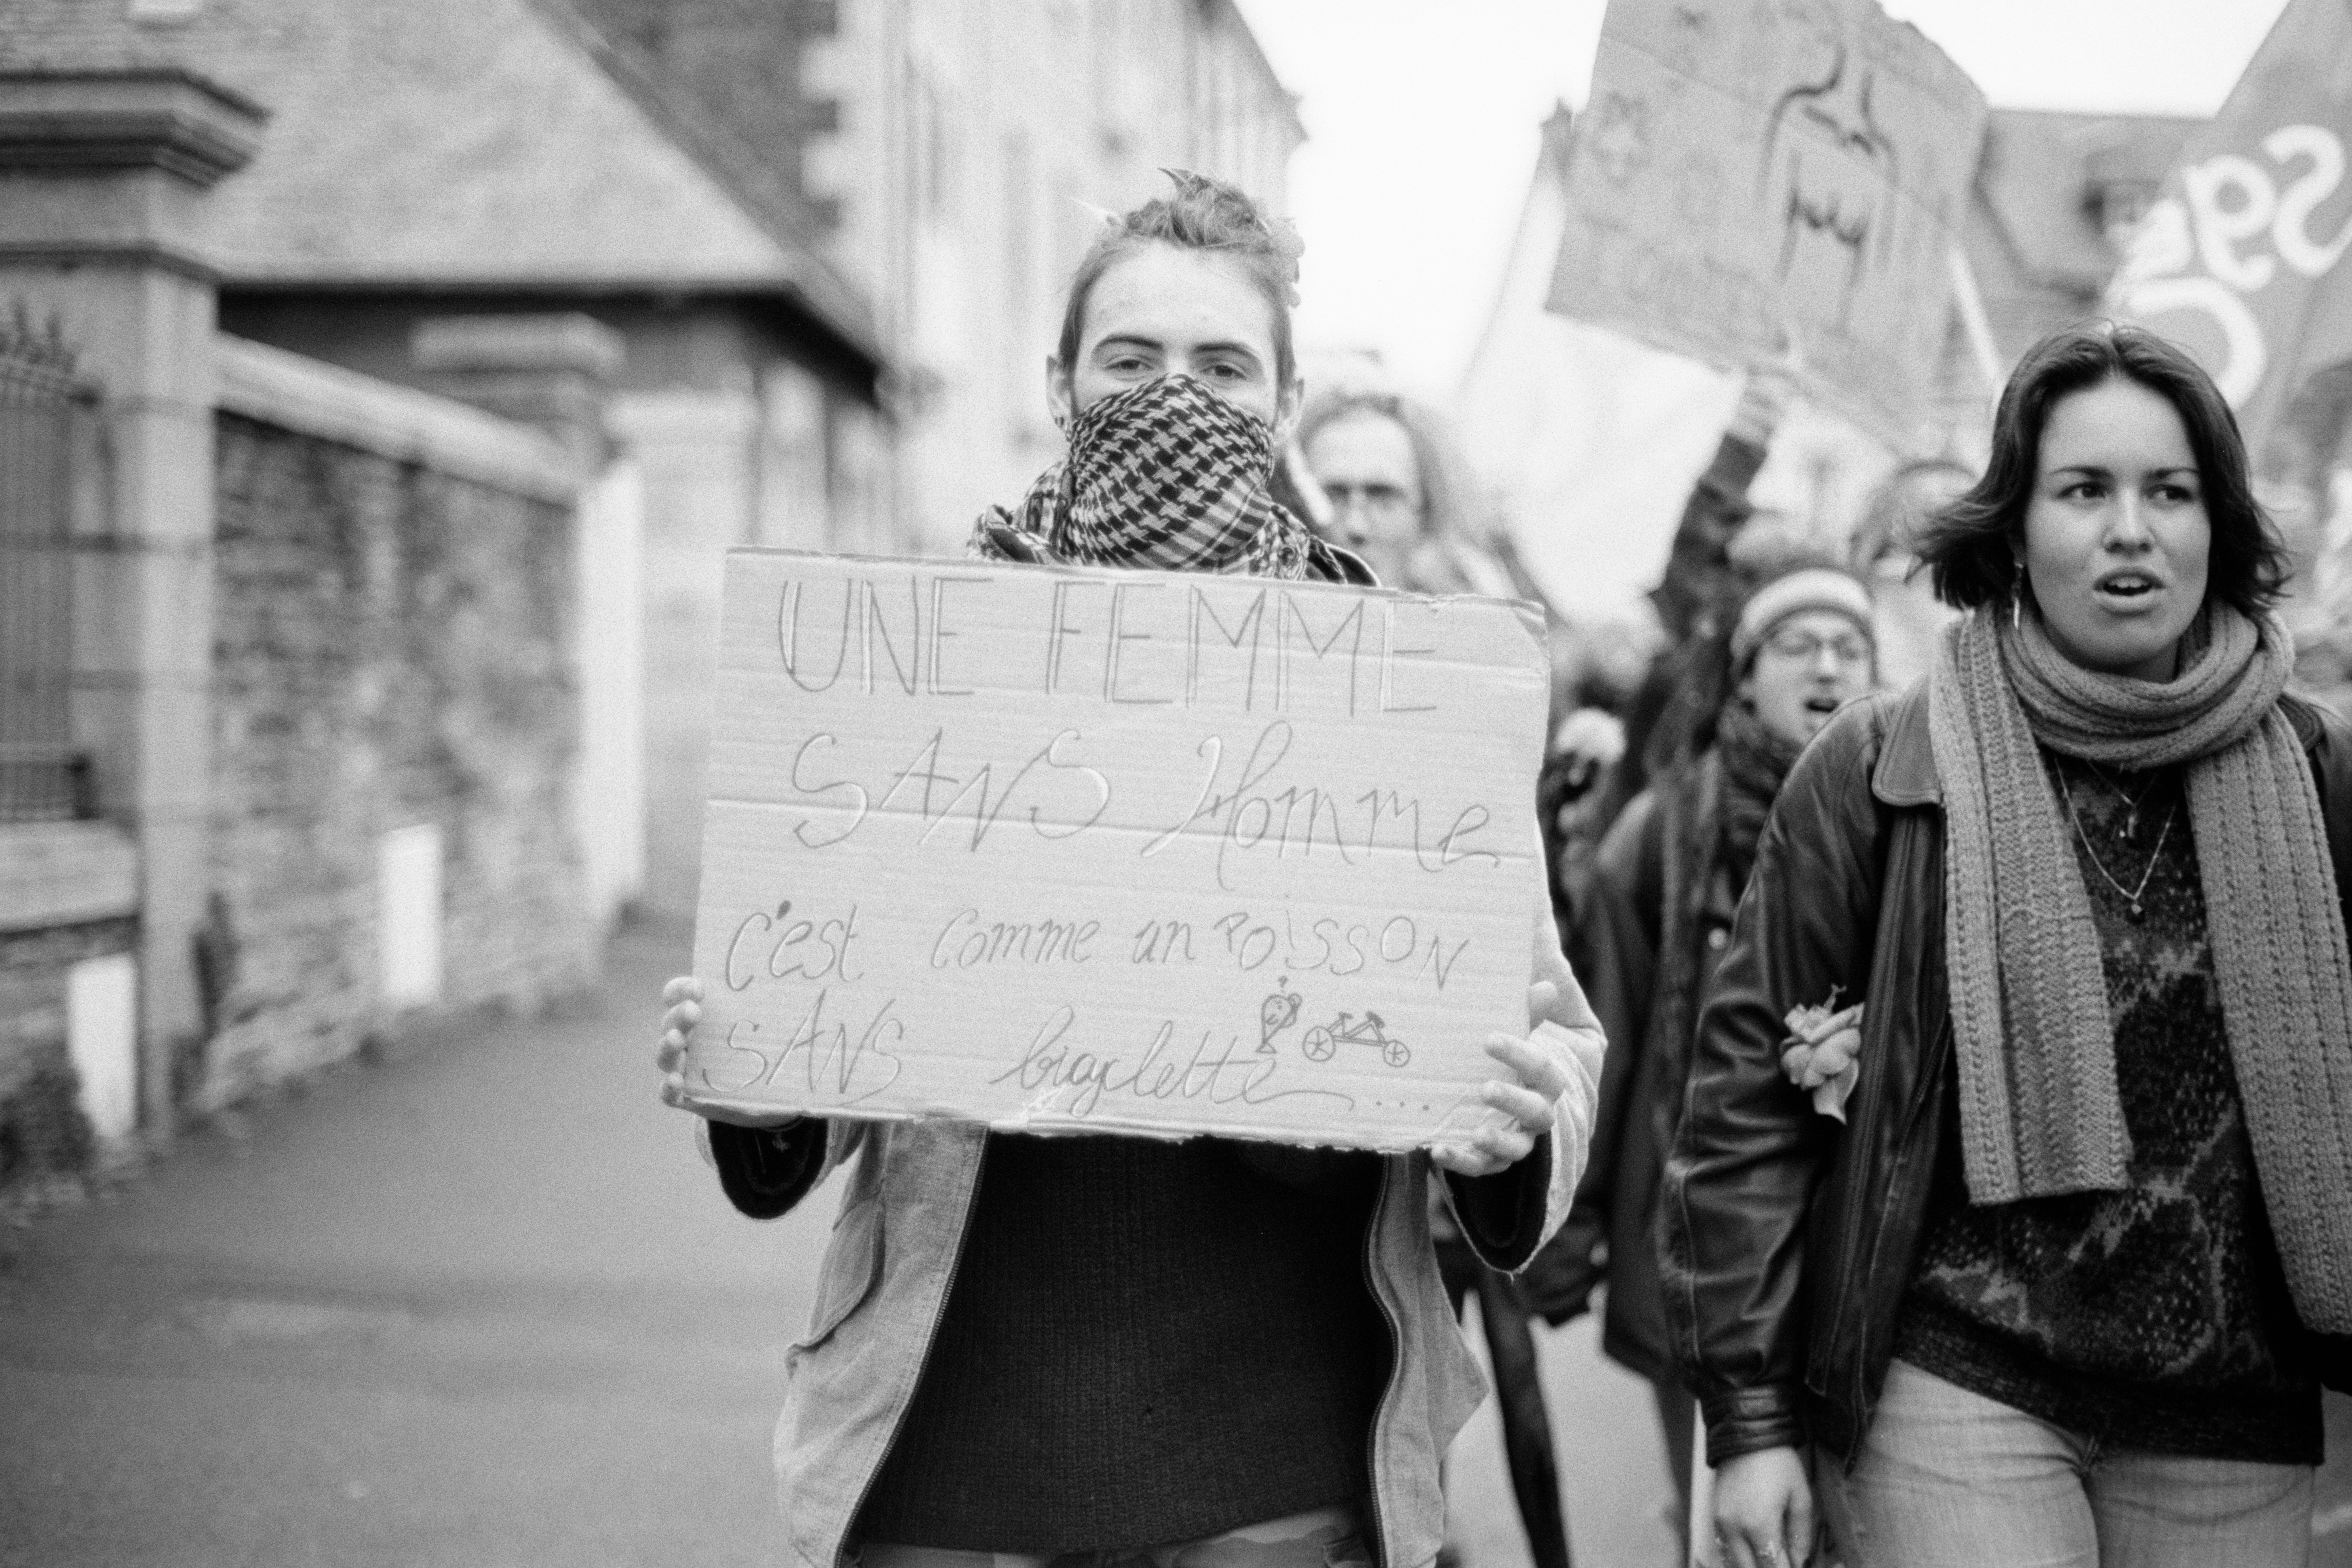 UNE FEMME
SANS Homme
c'est comme un POiSSON
SANS bicyclette...